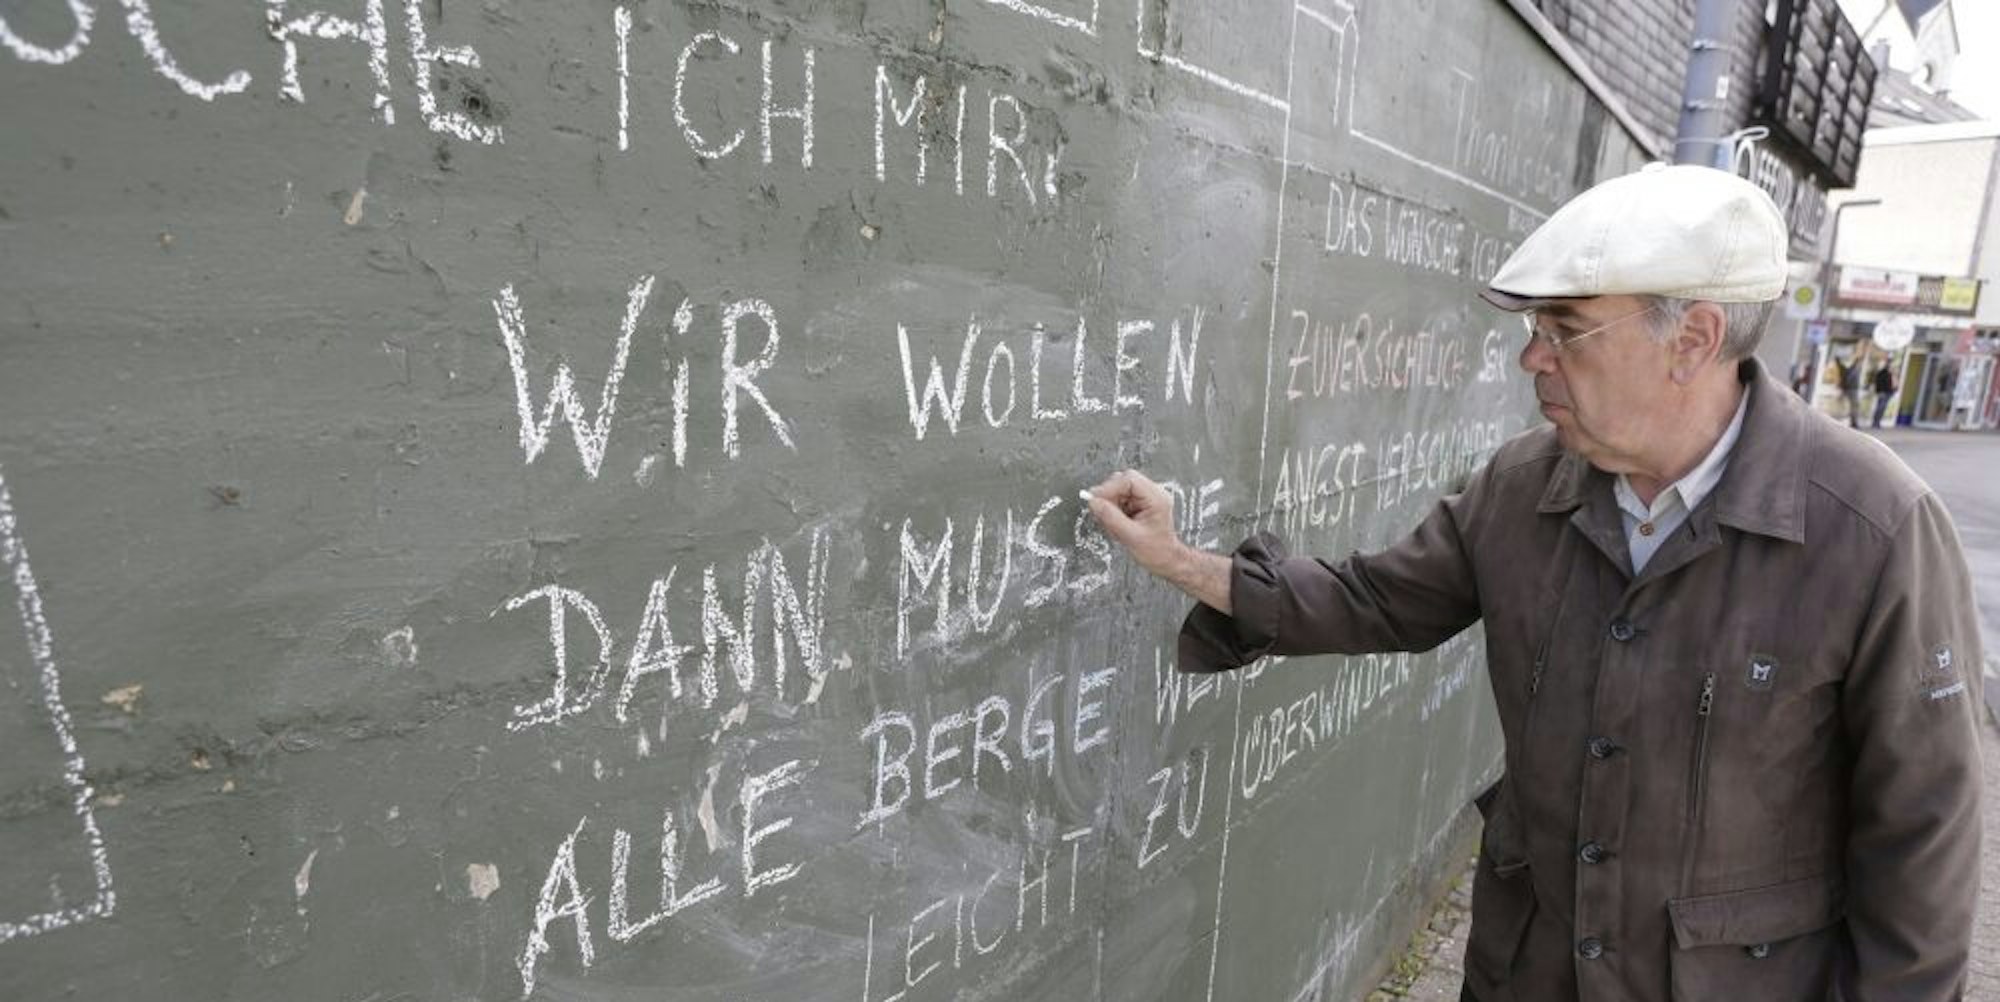 SCHE ICH MIR,
WIR WOLLEN
DANN MUSS DIE
ALLE BERGE
LEICHT ZU
Thanks
DAS WÜNSCHE ICH
ZUVERSICHTLICH SEIN
ANGST VERSCHWINDEN
ÜBERWINDEN